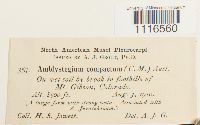 1116560
North American Musci Pleurocarpi
Issued by A. J. Grout, Ph.D.
Amblystegium compactum (C. M.) Aust.
On wet soil by brook in foothills of
Mt. Gibson, Colorado.
Alt. 8500 ft. Aug. 3, 1910.
A large form with strong costa. Associated with
Coll. H. S. Jewett. Det. A. J. G.